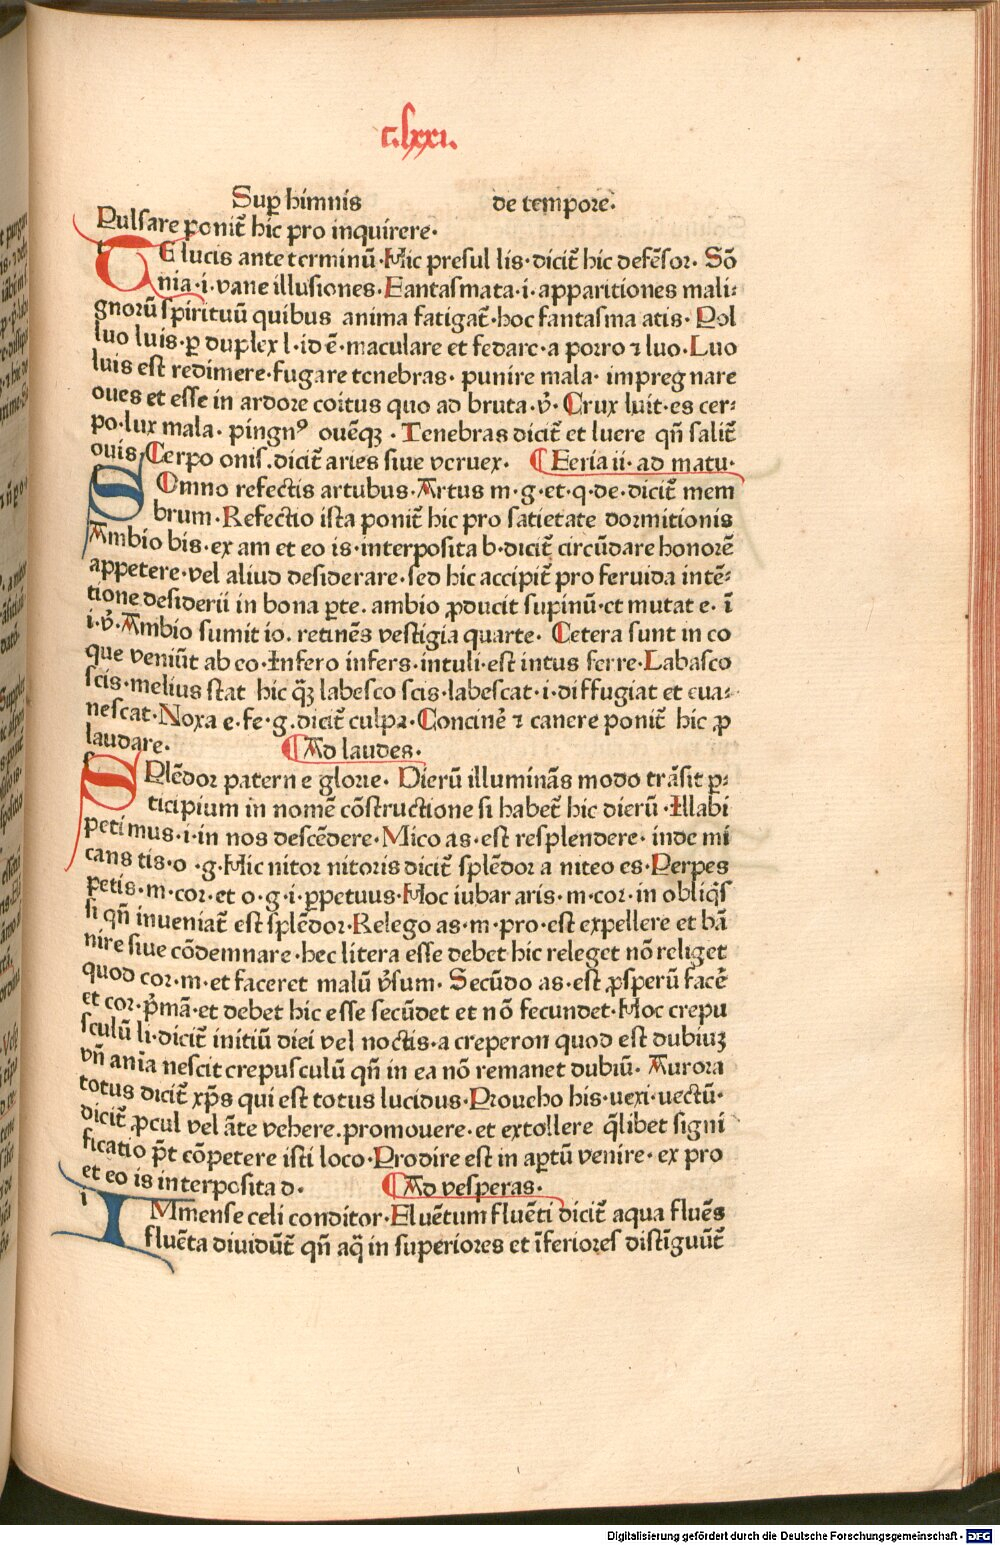 c.lxxi.
Suꝑ himnis de tempore.
Pulsare ponit̄ hic pro inquirere.
TE lucis ante terminū. Hic presul lis. dicit̄ hic defēsor. Sō
nia. i. vane illusiones. Fantasmata. i. apparitiones mali⸗
gnorū spirituū quibus anima fatigat̄. hoc fantasma atis. Pol
luo luis. ꝑ duplex l. id ē. maculare et fedare. a porro ⁊ luo. Luo
luis est redimere. fugare tenebras. punire mala. impregnare
oues et esse in ardore coitus quo ad bruta. v̄. Crux luit. es cer⸗
po. lux mala. pingnꝰ ouēqꝫ. Tenebras dicit̄ et luere qn̄ salit̄
ouis. Cerpo onis. dicit̄ aries siue veruex. ¶ Feria ii. ad matu.
SOmno refectis artubus. Artus m. g. et. q. de. dicit̄ mem
brum. Refectio ista ponit̄ hic pro satietate dormitionis
Ambio bis. ex am et eo is. interposita b. dicit̄ circūdare honorē
appetere. vel aliud desiderare. sed hic accipit̄ pro feruida intē⸗
tione desiderii in bona ꝑte. ambio ꝓducit supinū. et mutat e. ī
i. v̄. Ambio sumit io. retinēs vestigia quarte. Cetera sunt in co
que veniūt ab co. Infero infers. intuli. est intus ferre. Labasco
scis. melius stat hic qꝫ labesco scis. labescat. i. diffugiat et eua⸗
nescat. Noxa e. fe. g. dicit̄ culpa. Concinē ⁊ canere ponit̄ hic ꝓ
laudare. ¶ Ad laudes.
SPlēdor paterne glorie. Dierū illuminās modo trāsit ꝑ⸗
ticipium in nomē cōstructione si habet̄ hic dierū. Illabi
petimus. i. in nos descēdere. Mico as. est resplendere. inde mi
cans tis. o. g. Hic nitor nitoris dicit̄ splēdor a niteo es. Perpes
petis. m. cor. et o. g. i ꝑpetuus. Hoc iubar aris. m. cor. in obliqs
si qn̄ inueniat̄ est splēdor. Relego as. m. pro. est expellere et bā
nire siue cōdemnare. hec litera esse debet hic releget nō religet
quod cor. m. et faceret malū v̄sum. Secūdo as. est ꝓsperū facē
et cor. p̄mā. et debet hic esse secūdet et nō fecundet. Hoc crepu
sculū li. dicit̄ initiū diei vel noctis. a creperon quod est dubiuꝫ
vn̄ anīa nescit crepusculū qn̄ in ea nō remanet dubiū. Aurora
totus dicit̄ xp̄s qui est totus lucidus. Proueho his. uexi. uectū.
dicit̄ ꝓcul vel āte vehere. promouere. et extollere q̄libet signi
ficatio p̄t cōpetere isti loco. Prodire est in aꝑtū venire. ex pro
et eo is interposita d. ¶ Ad vesperas.
IMmense celi conditor. Fluētum fluēti dicit̄ aqua fluēs
fluēta diuidūt̄ qn̄ aq̄ in superiores et īferiores distīguūt̄
Digitalisierung gefördert durch die Deutsche Forschungsgemeinschaft - DFG